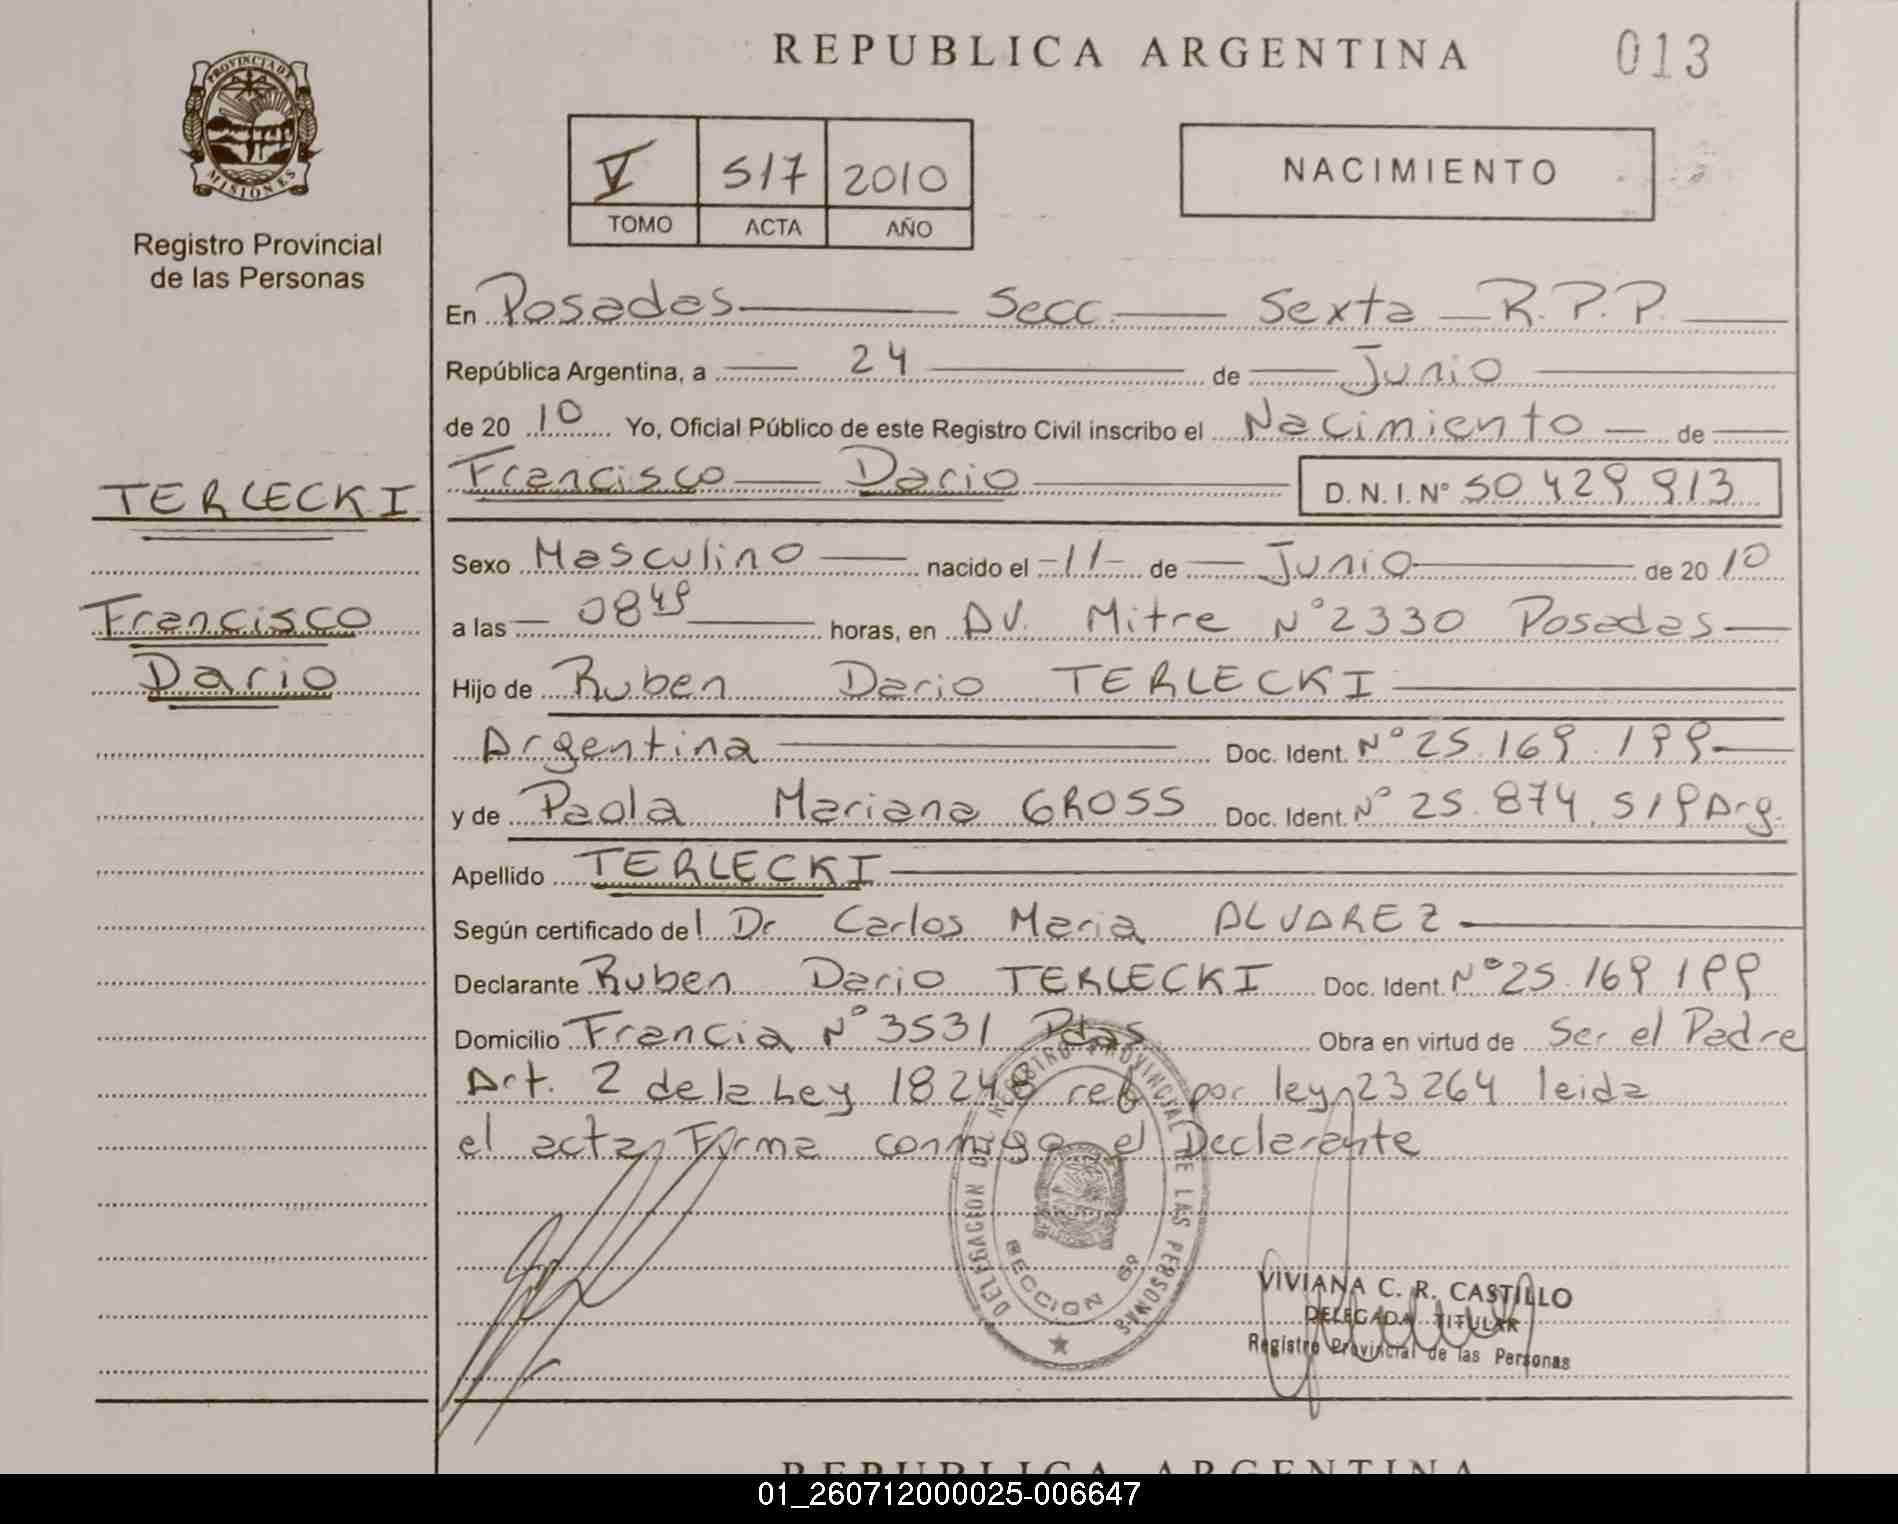 REPUBLICA ARGENTINA
013
PROVINCIA DE
MISIONES
Registro Provincial
de las Personas
V 517 2010
TOMO ACTA AÑO
NACIMIENTO
En Posadas Secc. Sexta R.P.P.
República Argentina, a 24 de Junio
de 20 10 Yo, Oficial Público de este Registro Civil inscribo el Nacimiento de
Francisco Dario D.N.I.Nº 50 429 913
TERLECKI
Francisco
Dario
Sexo Masculino nacido el -11- de Junio de 20 10
a las 0849 horas, en AV. Mitre Nº 2330 Posadas
Hijo de Ruben Dario TERLECKI
Argentina Doc. Ident. Nº 25.169.199
y de Paola Mariana GROSS Doc. Ident. Nº 25.874.519 Arg.
Apellido TERLECKI
Según certificado del Dr Carlos Maria ALVAREZ
Declarante Ruben Dario TERLECKI Doc. Ident. Nº 25.169 199
Domicilio Francia Nº 3531 Pdas Obra en virtud de Ser el Padre
Art. 2 de la Ley 18248 ref por ley 23264 leida
el acta Firma conmigo el Declarante
DELEGACION DEL REGISTRO PROVINCIAL DE LAS PERSONAS
SECCION 6º
VIVIANA C. R. CASTILLO
DELEGADA TITULAR
Registro Provincial de las Personas
REPUBLICA ARGENTINA
01_260712000025-006647